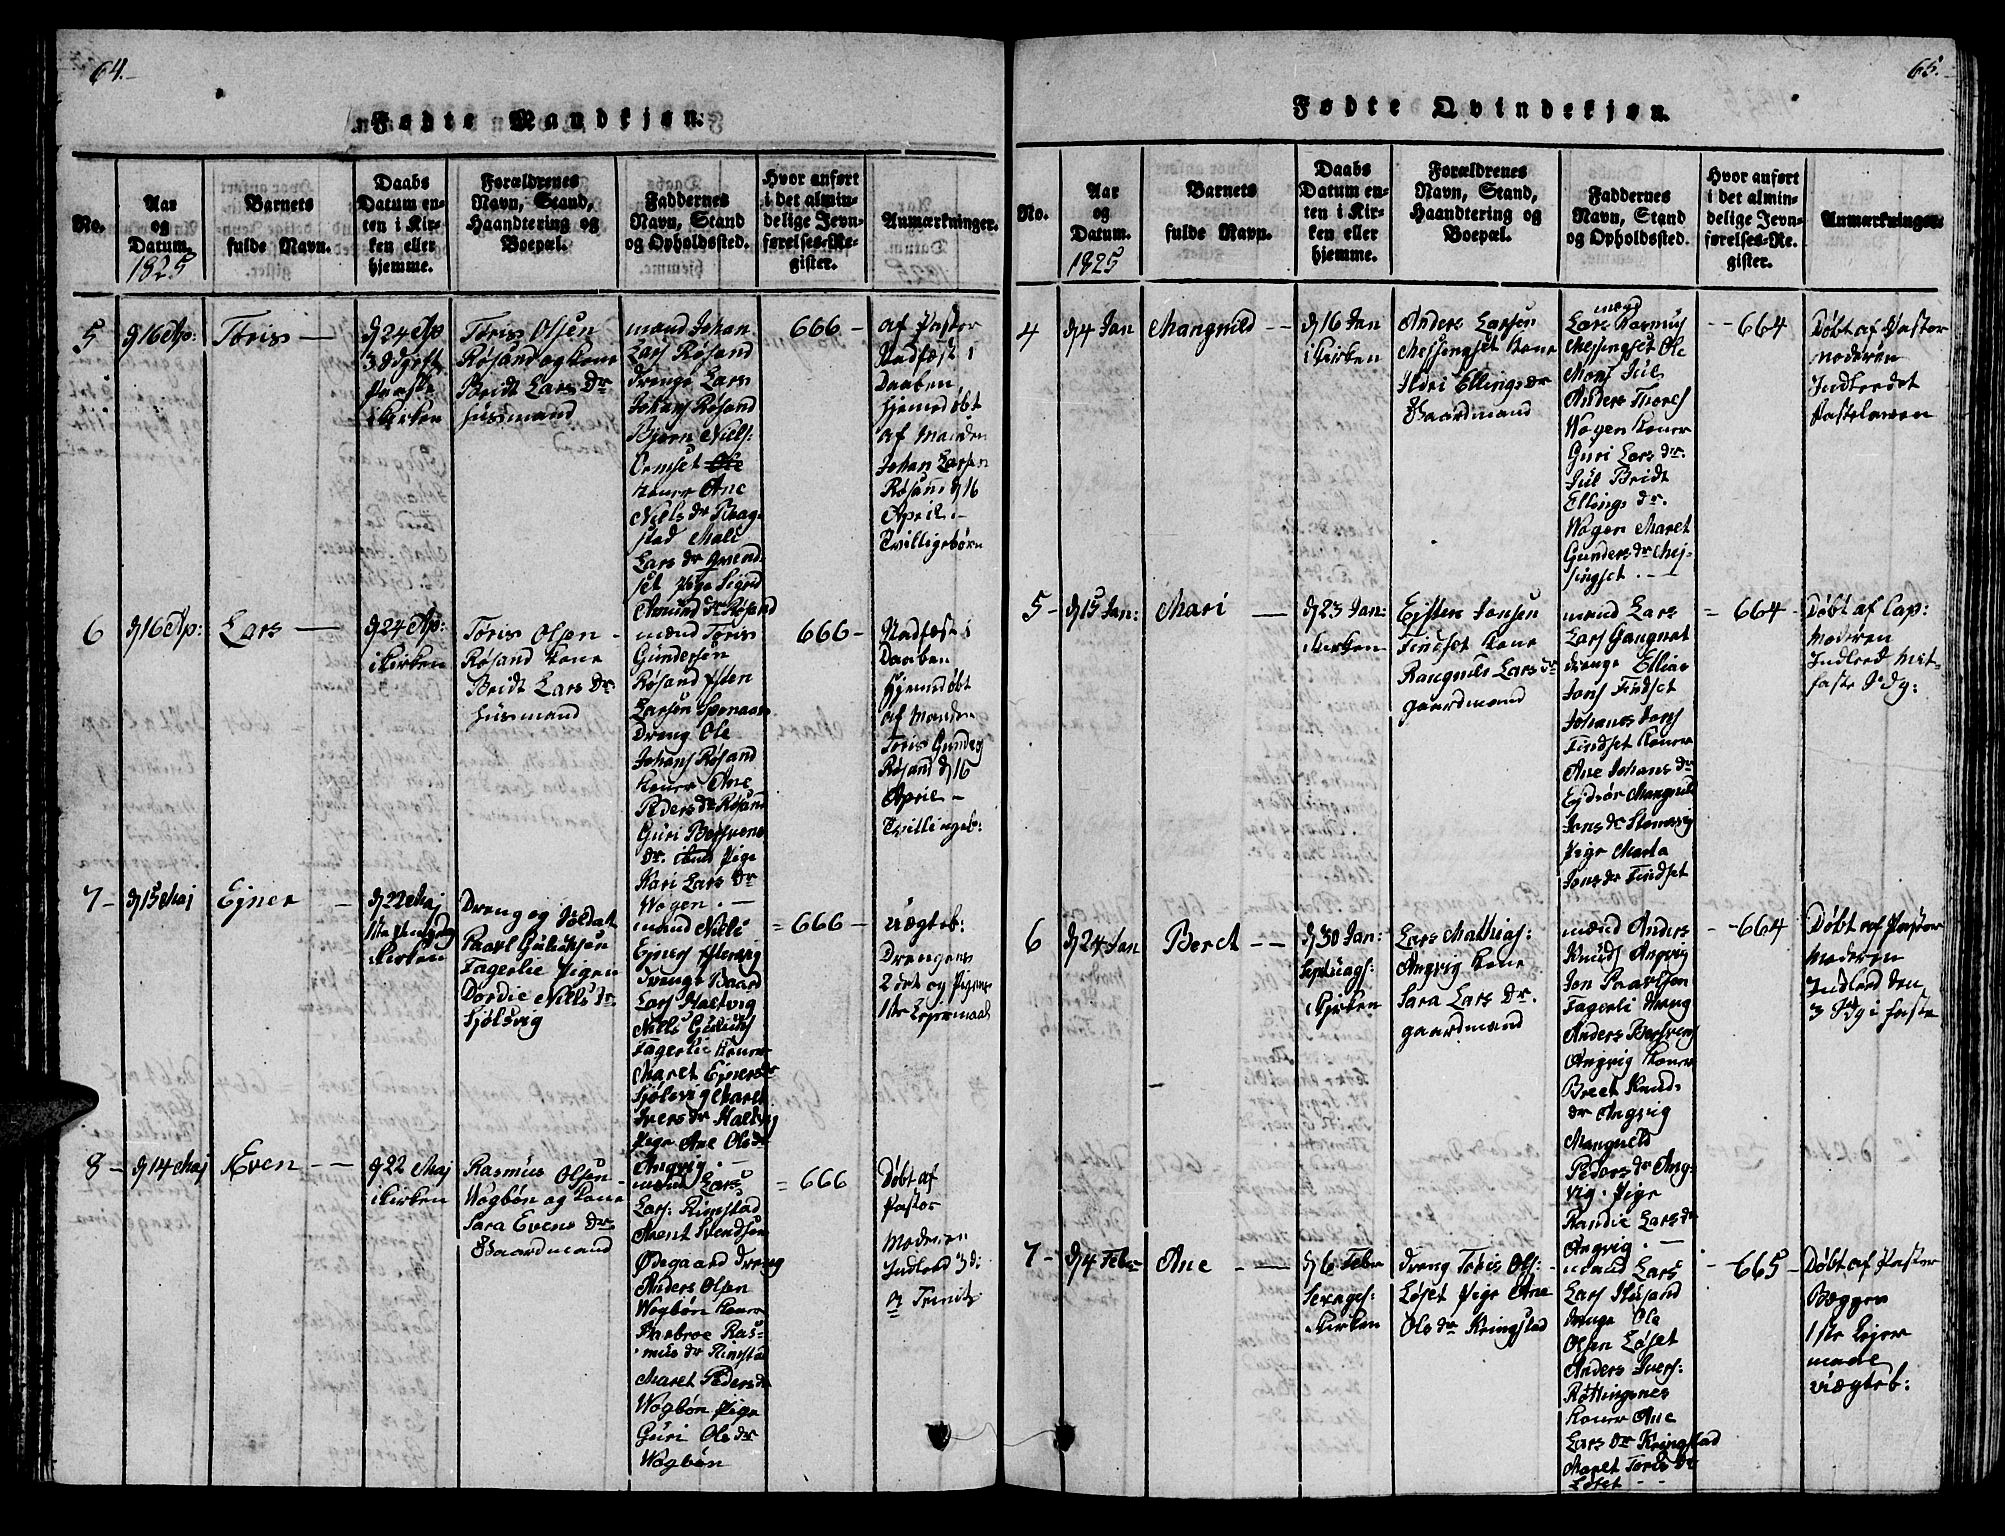 64.
Fødte Mandkjøn.
No.
Aar
og
Datum.
1825
Barnets
fulde Navn.
Daabs
Datum en-
ten i Kir-
ken eller
hjemme.
Forældrenes
Navn, Stand,
Haandtering og
Boepæl.
Faddernes
Navn, Stand
og Opholdssted.
Hvor anført
i det almin-
delige Jevn-
førelses-Re-
gister.
Anmærkninger.
5
d 16 Ap:
Tøris
d 24 Ap
3 S
Paaske
i Kirken
Tøris Olsen
Røsand og Kone
Bridt Lars Dr
Husmand
mænd Johan
Lars Røsand
drenge Lars
Johans Røsand
Bjørn Niels:
Ormset Ole
Koner Ane
Niels dr
stad Mali
Lars dr
set Pige Sigrid
Amund dr Røsand
666
af Pastor
Stadfæst i
Daaben
Hjemedøbt
af Manden
Johan Larsen
Røsand d 16
April
Tvillingebørn
6
d 16 Ap:
Lars
d 24 Ap:
i Kirken
Tøris Olsen
Røsand Kone
Bridt Lars Dr
Husmand
mænd Tøris
Gundersen
Røsand Esten
Larsen
Dreng Ole
Johans Røsand
Koner Ane
Peders dr Røsand
Guri Bersvens
dr. Pige
Kari Lars dr
Wogen
666
Stadfæst i
Daaben
Hjemedøbt
af Manden
Tøris Gunders
Røsand d 16
April
Tvillingeb:
7
d 15 Maj
Ejner
d 22 Maj
i Kirken
Dreng og Soldat
Paavl Gulliksen
Fagerlie Pigen
Dordie Nills dr
Sjølsvig
mænd Nills
Ejners
drenge Baard
Lars Haltvig
Nills
Fagerlie Koner
Maret Ejners dr
Sjølsvig Maret
Ivers dr Haltvig
Pige Ane Ols dr
Angvig
666
Uægteb:
Drengens
2det og Pigens
1ste Lejermaal
8
d 14 Maj
Even
d 22 Maj
i Kirken
Rasmus Olsen
Wogbøn og Kone
Sara Evens dr
Gaardmand
mænd Lars
Lars: Rimstad
Arent Svendsen
Ødegaard dreng
Anders Olsen
Wogbøn Koner
Barbroe Ras-
mus dr Rimstad
Maret Peders dr
Wogbøn Pige
Guri Ole dr
Wogbøn
666
Døbt af
Pastor
Moderen
Indled 3 di
a Trinit
65.
Fødte Qvindekjøn.
No.
Aar
og
Datum.
1825
Barnets
fulde Navn.
Daabs
Datum en-
ten i Kir-
ken eller
hjemme.
Forældrenes
Navn, Stand,
Haandtering og
Boepæl.
Faddernes
Navn, Stand
og Opholdssted.
Hvor anført
i det almin-
delige Jevn-
førelses-Re.
gister.
Anmærkninger.
4
d 4 Jan
Mangnild
d 16 Jan
i Kirken
Anders Larsen
Messingset Kone
Ildri Ellings dr
Gaardmand
mænd
Lars Rasmus
Messingset Ole
Mons Jul
Anders Thores
Wogen Koner
Guri Lars dr.
Jul Bridt
Ellings dr.
Wogen Maret
Gunders dr Mes-
singset
664
Døbt af Pastor
Moderen
Indleedet
Fastelaven
5
d 15 Jan:
Mari
d 23 Jan:
i Kirken
Ejsten Jonsen
Findset Kone
Rangnild Lars dr
Gaardmand
mænd Lars
Lars Gangnat
drenge Ellias
Jons Findset
Johanes Jons
Findset Koner
Ane Johans dr
Ejdsør Mangnild
Jons dr Stomsvig
Pige Marta
Jons dr Findset
664
Døbt af Cap:
Moderen
Indleed Mit-
faste Sdg:
6
d 24 Jan
Beret
d 30 Jan:
Septuags:
i Kirken
Lars Mathias:
Angvig Kone
Sara Lars dr.
Gaardmand
mænd Anders
Knuds Angvig
Jon Paavlsen
Fagerli dreng
Anders Bersvens
Angvig Koner
Breet Knuds
dr Angvig
Mangnild
Peders dr Ang-
vig. Pige
Randie Lars dr
Angvig
664
Døbt af Pastor
Moderen
Indleed den
3 Sdg i Faste
7
d 4 Febr
Ane
d 6 Febr
Sexages:
i Kirken
dreng Tøris Ols:
Løset Pige Ane
Ole dr Kringstad
mænd Lars
Lars Husand
drenge Ole
Olsen Løset
Anders Ivers:
Røttingsnes
Koner Ane
Lars dr Kringstad
Maret Toris dr
Løset
665
Døbt af Pastor
Begges
1ste Lejer
maal
Uægteb: